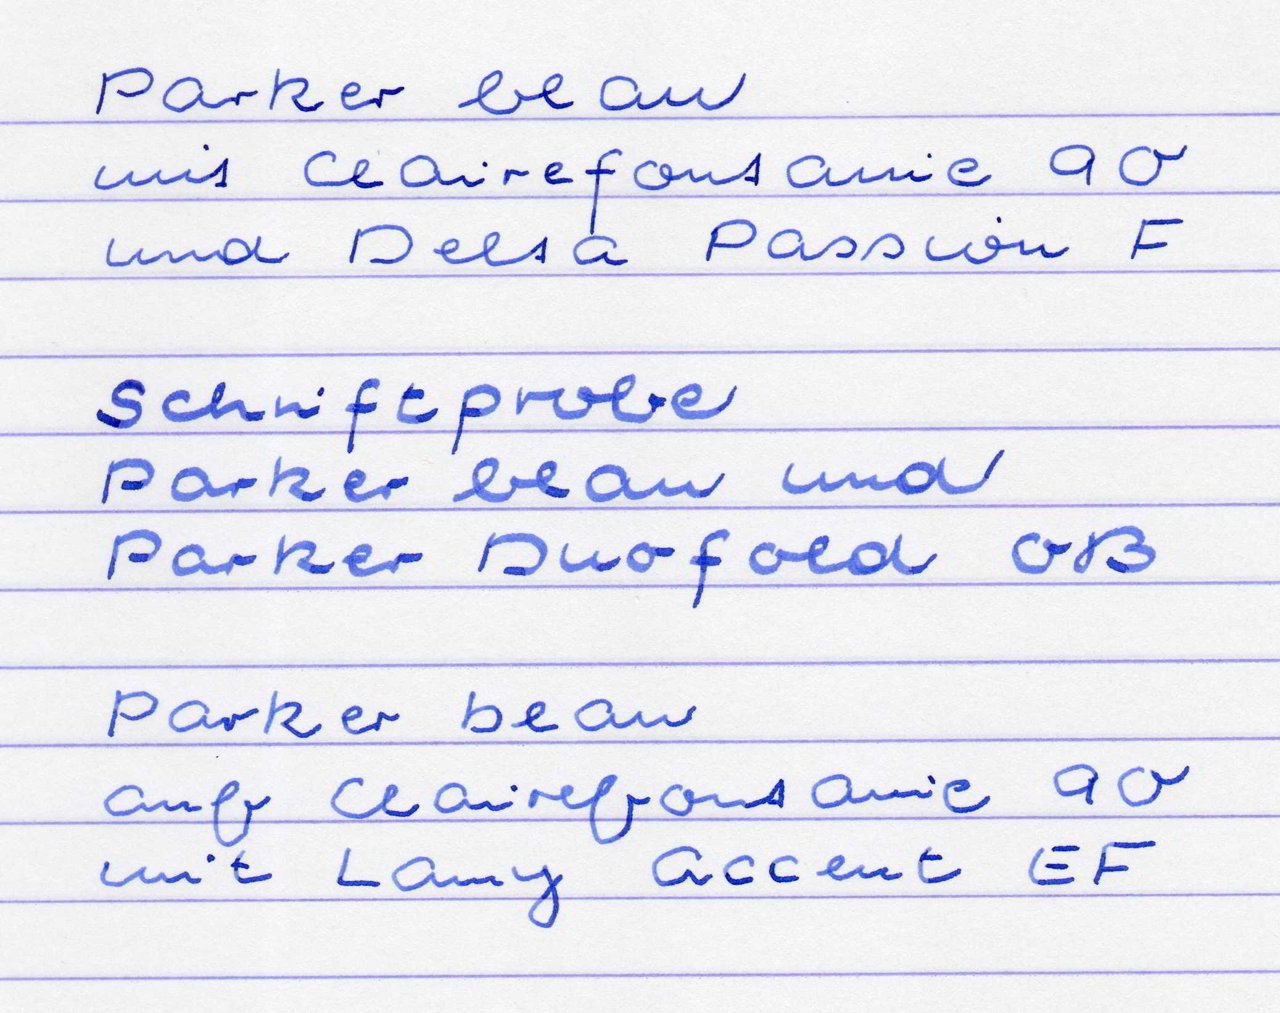 Parker blau
mit Clairefontaine 90
und Delta Passion F
Schriftprobe
Parker blau und
Parker Duofold OB
Parker blau
auf Clairefontaine 90
mit Lamy accent EF